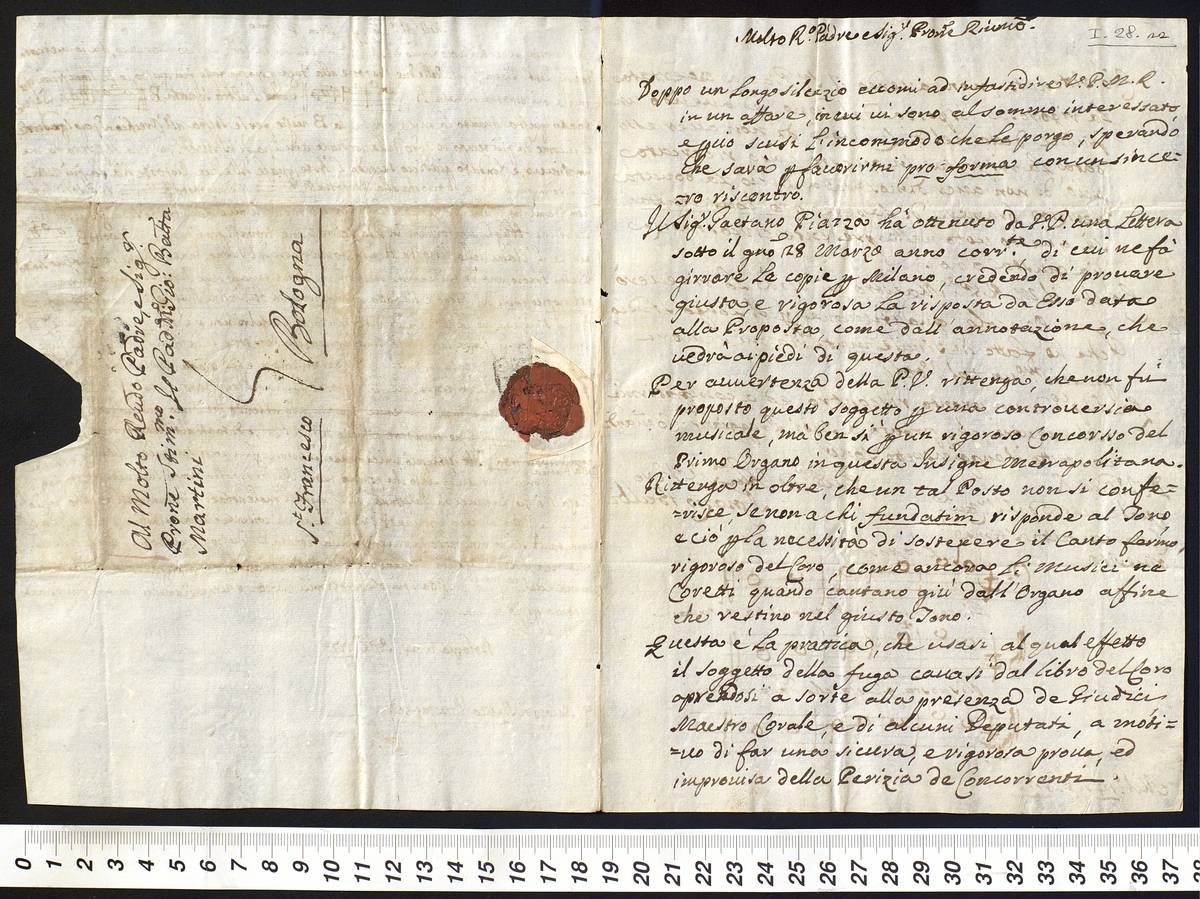 Al Molto Rendo Padre, e Sigr
Proñe Stim:mo Il Pad: M: Gio: Batta
Martini
Bologna
S.t Francesco
Molto R.o Padre e Sig.r Proñe
I. 28. 22
Doppo un longo silenzio eccomi ad infastidire V.a P. M. R.
in un affare, in cui vi sono al sommo interessato
e può scusi l'incommodo che Le porgo, sperando
che sarà p favorirmi pro forma con un since=
=ro riscontro.
Il Sig.r Gaetano Piazza hà ottenuto da V.a P. una Lettera
sotto il gño 28 Marzo anno corr.te di cui ne fà
girrare le copie p Milano, credendo di provare
giusta, e rigorosa La risposta da Esso data
alla Proposta, come dall' annotazione, che
vedrà ai piedi di questa.
Per avvertenza della P. V. rittenga, che non fù
proposto questo soggetto p una controversia
musicale, mà ben sì p un rigoroso Concorsso del
Primo Organo in questa Insigne Metrapolitana.
Rittenga in oltre, che un tal Posto non si confe=
=risce, se non a chi fundatim risponde al Tono
e ciò p la necessità di sostenere il Canto farmo,
rigoroso del Coro, come ancora li Musici ne
Coretti quando cantano giù dall' Organo affine
che restino nel giusto Tono.
Questa è La prattica, che usasi al qual effetto
il soggetto della fuga cavasi dal libro del Coro
aprendosi a sorte alla presenza de Giudici
Maestro Corale, e di alcuni Deputati, a moti=
=vo di far una sicura, e rigorosa prova, ed
improvisa della Perizia de Concorrenti.
0 1 2 3 4 5 6 7 8 9 10 11 12 13 14 15 16 17 18 19 20 21 22 23 24 25 26 27 28 29 30 31 32 33 34 35 36 37 38